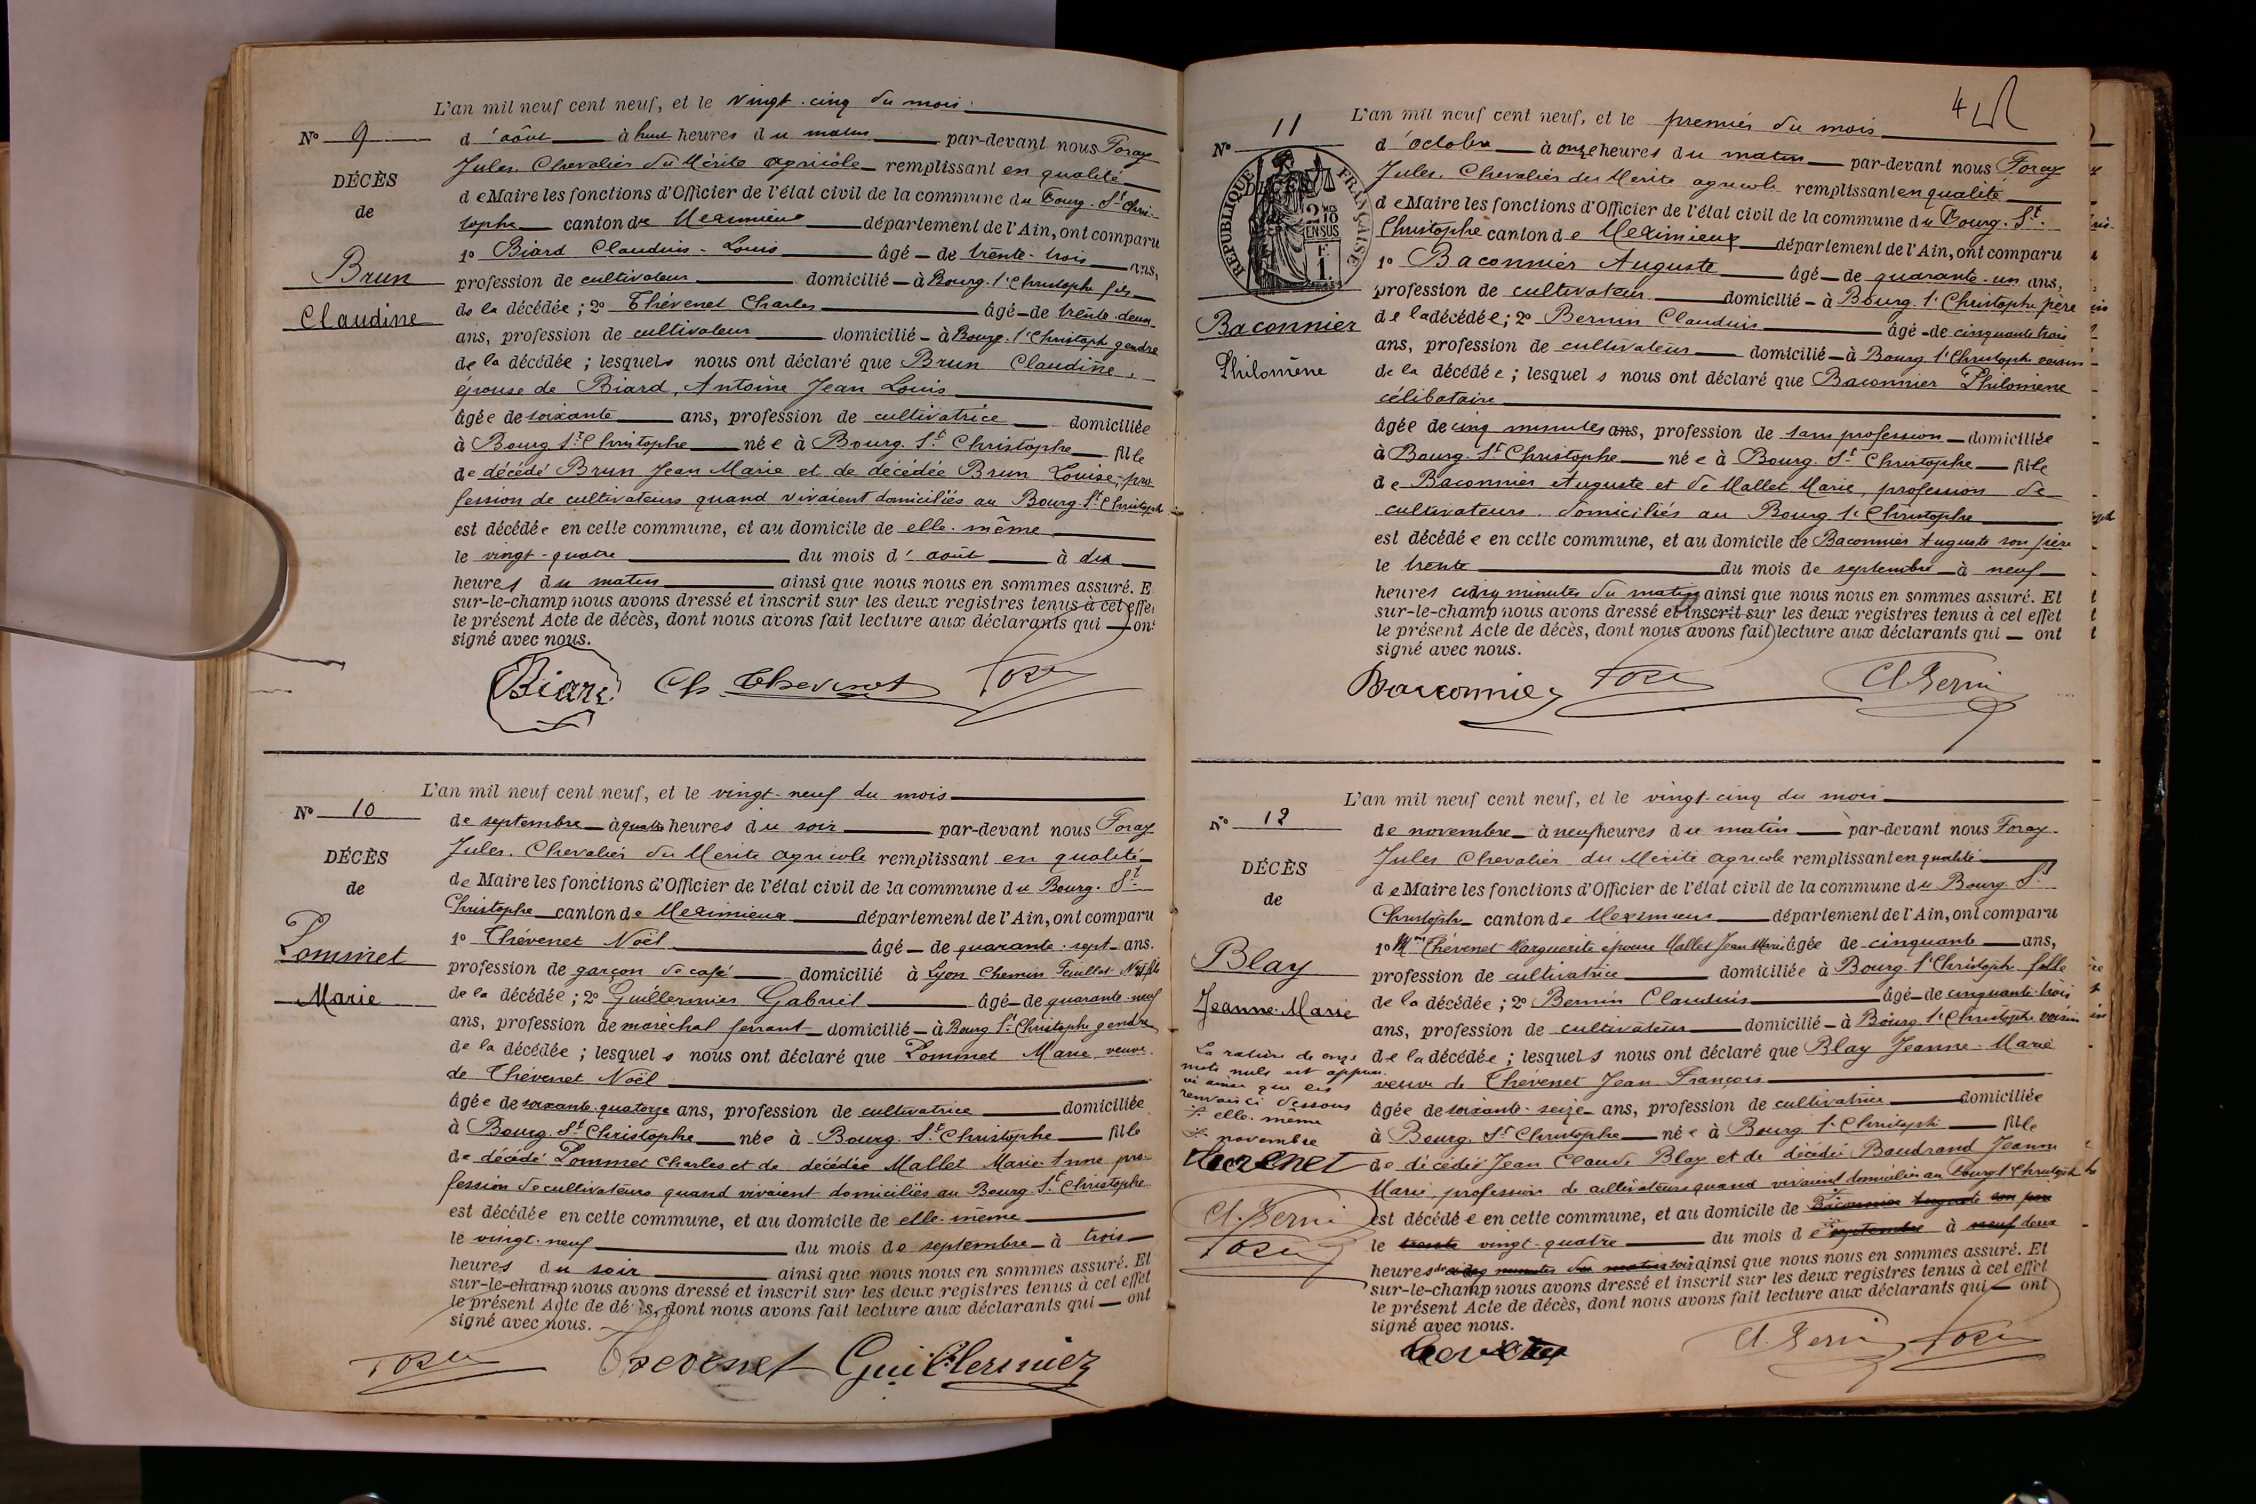 L'an mil neuf cent neuf, et le vingt-cinq du mois
N° 9
d'août à huit heures du matin par-devant nous Foray
Jules, Chevalier du Mérite agricole remplissant en qualité
DÉCÈS
de Maire les fonctions d'Officier de l'état civil de la commune du Bourg-St Chris-
de
tophe canton de Meximieux département de l'Ain, ont comparu
1° Biard Claudius-Louis âgé de trente-trois ans,
Brun
profession de cultivateur domicilié à Bourg-St Christophe fils
Claudine
de la décédée ; 2° Thévenet Charles âgé de trente-deux
ans, profession de cultivateur domicilié à Bourg-St Christophe gendre
de la décédée ; lesquels nous ont déclaré que Brun Claudine,
épouse de Biard, Antoine Jean Louis
âgée de soixante ans, profession de cultivatrice domiciliée
à Bourg St Christophe née à Bourg-St Christophe fille
de décédé Brun Jean Marie et de décédée Brun Louise, pro-
fession de cultivateurs quand vivaient domiciliés au Bourg-St Christophe
est décédée en cette commune, et au domicile de elle-même
le vingt-quatre du mois d'août à dix
heures du matin ainsi que nous nous en sommes assuré. E
sur-le-champ nous avons dressé et inscrit sur les deux registres tenus à cet effet
le présent Acte de décès, dont nous avons fait lecture aux déclarants qui ont
signé avec nous.
Biard Ch Thevenet Foray
L'an mil neuf cent neuf, et le vingt-neuf du mois
N° 10
de septembre à quatre heures du soir par-devant nous Foray
Jules, Chevalier du Merite agricole remplissant en qualité
DÉCÈS
de Maire les fonctions d'Officier de l'état civil de la commune du Bourg-St
de
Christophe canton de Meximieux département de l'Ain, ont comparu
1° Thévenet Noël âgé de quarante-sept ans.
Pommet
profession de garçon de café domicilié à Lyon Chemin Feuillat fils
Marie
de la décédée ; 2° Guillermier Gabriel âgé de quarante-neuf
ans, profession de maréchal ferrant domicilié à Bourg St Christophe gendre
de la décédée ; lesquels nous ont déclaré que Pommet Marie veuve
de Thévenet Noël
âgée de soixante-quatorze ans, profession de cultivatrice domiciliée
à Bourg-St Christophe née à Bourg-St Christophe fille
de décédé Pommet Charles et de décédée Mallet Marie-Anne pro-
fession de cultivateurs quand vivaient domiciliés au Bourg-St Christophe
est décédée en cette commune, et au domicile de elle-même
le vingt-neuf du mois de septembre à trois
heures du soir ainsi que nous nous en sommes assuré. Et
sur-le-champ nous avons dressé et inscrit sur les deux registres tenus à cet effet
le présent Acte de décès, dont nous avons fait lecture aux déclarants qui ont
signé avec nous.
Foray Thevenet Guillermier
4
L'an mil neuf cent neuf, et le premier du mois
N° 11
d'octobre à onze heures du matin par-devant nous Foray
Jules, Chevalier du Merite agricole remplissant en qualité
DÉCÈS
RÉPUBLIQUE FRANÇAISE
2/10 EN SUS
F 1
de Maire les fonctions d'Officier de l'état civil de la commune du Bourg-St
Christophe canton de Meximieux département de l'Ain, ont comparu
1° Baconnier Auguste âgé de quarante-un ans,
profession de cultivateur domicilié à Bourg-St Christophe père
Baconnier
de la décédée ; 2° Bernin Claudius âgé de cinquante trois
ans, profession de cultivateur domicilié à Bourg St Christophe voisin
Philomène
de la décédée ; lesquels nous ont déclaré que Baconnier Philomène
célibataire
âgée de cinq minutes ans, profession de sans profession domiciliée
à Bourg-St Christophe née à Bourg-St Christophe fille
de Baconnier Auguste et de Mallet Marie, profession de
cultivateurs domiciliés au Bourg St Christophe
est décédée en cette commune, et au domicile de Baconnier Auguste son père
le trente du mois de septembre à neuf
heures cinq minutes du matin ainsi que nous nous en sommes assuré. Et
sur-le-champ nous avons dressé et inscrit sur les deux registres tenus à cet effet
le présent Acte de décès, dont nous avons fait lecture aux déclarants qui ont
signé avec nous.
Baconnier Foray Cl. Bernin
L'an mil neuf cent neuf, et le vingt-cinq du mois
N° 12
de novembre à neuf heures du matin par-devant nous Foray
Jules Chevalier du Mérite agricole remplissant en qualité
DÉCÈS
de Maire les fonctions d'Officier de l'état civil de la commune du Bourg St
de
Christophe canton de Meximieux département de l'Ain, ont comparu
1° Mme Thévenet Marguerite épouse Mallet Jean Marie âgée de cinquante ans,
Blay
profession de cultivatrice domiciliée à Bourg St Christophe fille
Jeanne-Marie
de la décédée ; 2° Bernin Claudius âgé de cinquante-trois
ans, profession de cultivateur domicilié à Bourg St Christophe voisin
de la décédée ; lesquels nous ont déclaré que Blay Jeanne-Marie
veuve de Thévenet Jean-François
âgée de soixante-seize ans, profession de cultivatrice domiciliée
à Bourg-St Christophe née à Bourg St Christophe fille
de décédés Jean Claude Blay et de décédée Baudrand Jeanne
Marie, profession de cultivateurs quand vivaient domiciliés au Bourg St Christophe
est décédée en cette commune, et au domicile de Baconnier Auguste son père
le trente vingt-quatre du mois de septembre à neuf deux
heures cinq minutes du matin soir ainsi que nous nous en sommes assuré. Et
sur-le-champ nous avons dressé et inscrit sur les deux registres tenus à cet effet
le présent Acte de décès, dont nous avons fait lecture aux déclarants qui ont
signé avec nous.
La rature de onze
mots nuls est approu-
vé ainsi que les
renvois ci dessous
elle-même
novembre
Thevenet
Cl. Bernin
Foray
Thevenet Cl. Bernin Foray